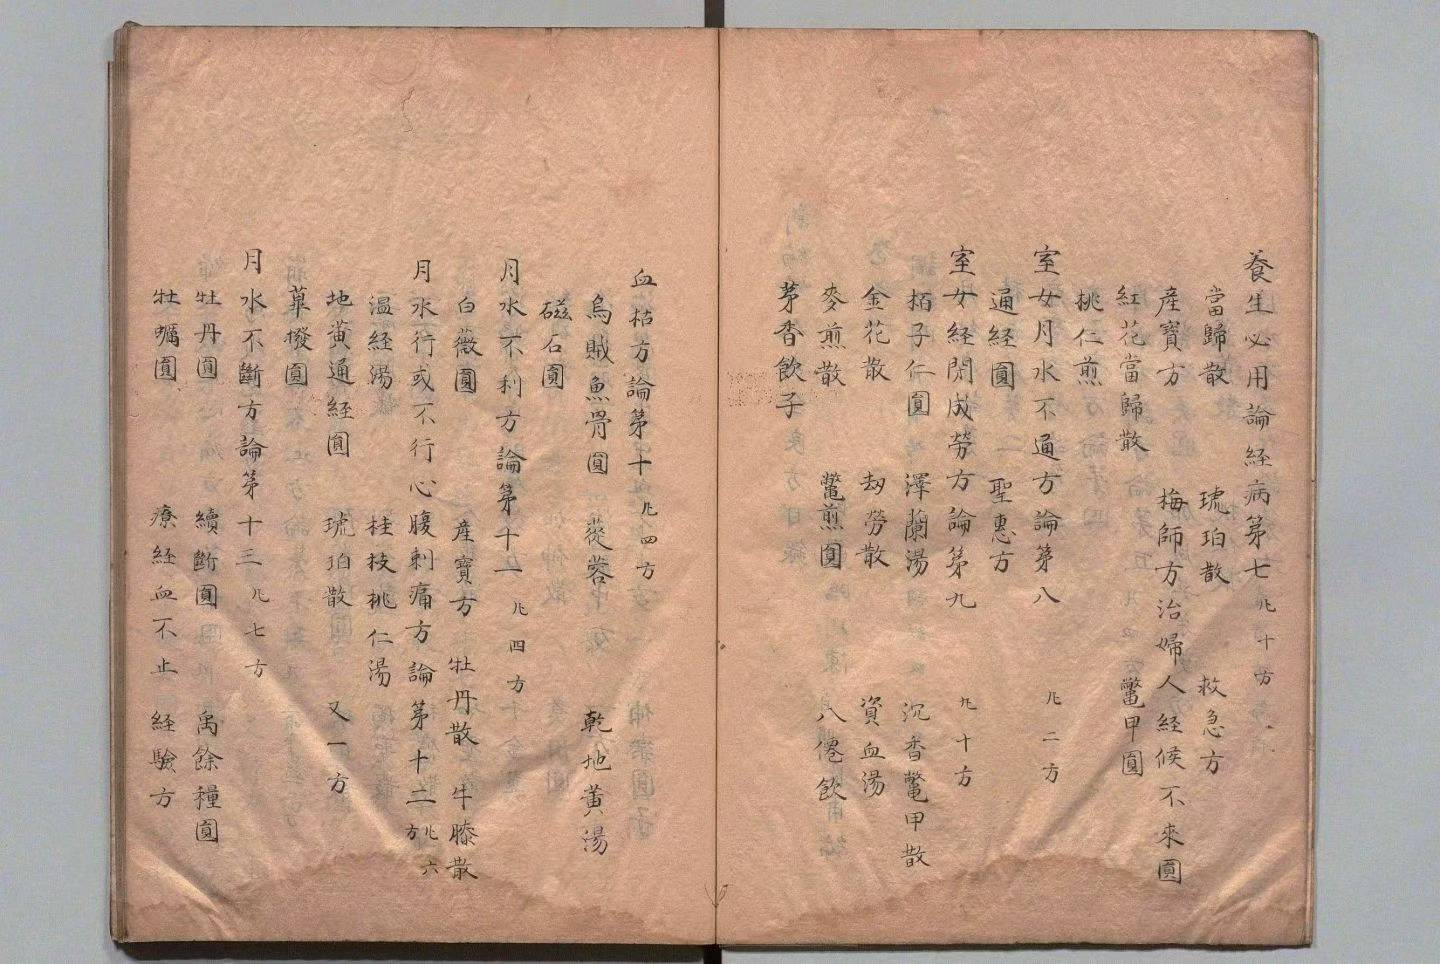 養生必用論経病第七 凡十方
當歸散 琥珀散 救急方
産寳方 梅師方治婦人経候不來圓
紅花當歸散 鼈甲圓
桃仁煎
室女月水不通方論第八 凡二方
通経圓 聖惠方
室女経閉成勞方論第九 凡十方
栢子仁圓 澤蘭湯 沉香鼈甲散
金花散 劫勞散 資血湯
麥煎散 鼈煎圓 八僊飲
茅香飲子
血枯方論第十 凡四方
烏賊魚骨圓 蓯蓉 乾地黃湯
磁石圓
月水不利方論第十一 凡四方
白薇圓 産寳方 牡丹散 牛膝散
月水行或不行心腹刺痛方論第十二 凡六方
溫経湯 桂枝桃仁湯
地黃通経圓 琥珀散 又一方
萆撥圓
月水不斷方論第十三 凡七方
牡丹圓 續斷圓 禹餘糧圓
牡蠣圓 療経血不止 経驗方